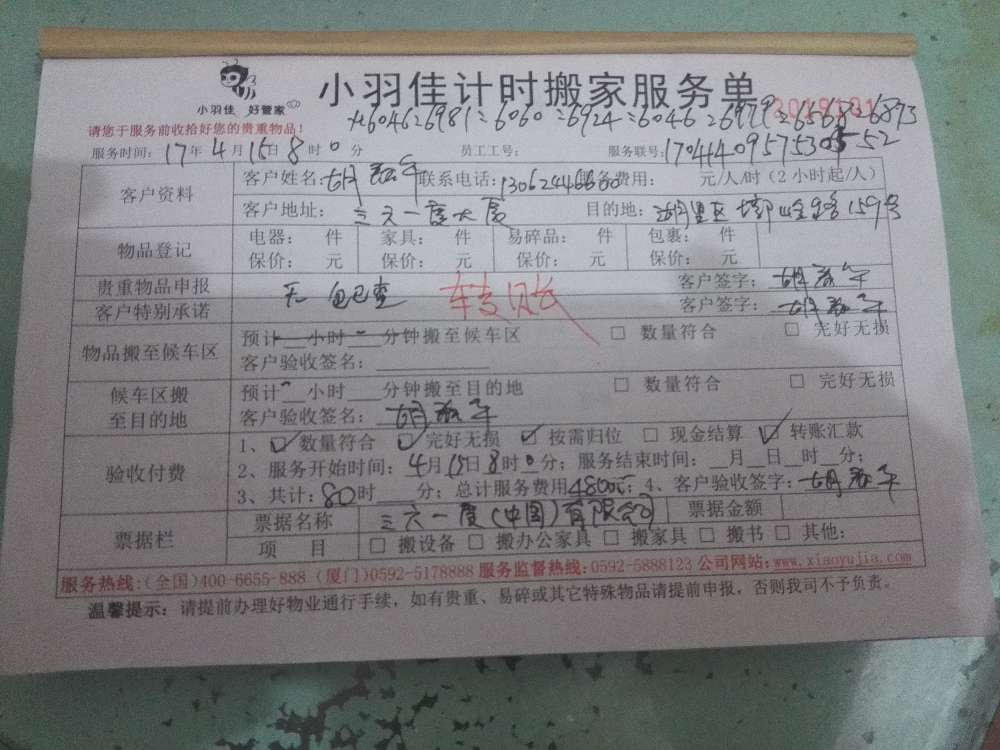 小羽佳 好管家
小羽佳计时搬家服务单
6046 6981 6060 6924 6046 6979 6873
请您于服务前收拾好您的贵重物品！
服务时间：17年4月15日8时0分 员工工号： 服务联号：
客户资料
客户姓名：胡 联系电话： 服务费用： 元/人/时（2小时起/人）
客户地址：三六一度大厦 目的地：湖里区 159号
物品登记
电器： 件 家具： 件 易碎品： 件 包裹： 件
保价： 元 保价： 元 保价： 元 保价： 元
贵重物品申报 无 自已查 转账 客户签字：胡
客户特别承诺 客户签字：胡
物品搬至候车区
预计 小时 分钟搬至候车区 □ 数量符合 □ 完好无损
客户验收签名：
候车区搬至目的地
预计 小时 分钟搬至目的地 □ 数量符合 □ 完好无损
客户验收签名：胡
验收付费
1、☑数量符合 ☑完好无损 ☑按需归位 □ 现金结算 ☑转账汇款
2、服务开始时间：4月15日8时0分；服务结束时间： 月 日 时 分；
3、共计：80时 分；总计服务费用4800元；4、客户验收签字：胡
票据栏
票据名称 三六一度（中国）有限公司 票据金额
项 目 □ 搬设备 □ 搬办公家具 □ 搬家具 □ 搬书 □ 其他：
服务热线：(全国)400-6655-888 (厦门)0592-5178888 服务监督热线：0592-5888123 公司网站：www.xiaoyujia.com
温馨提示：请提前办理好物业通行手续，如有贵重、易碎或其它特殊物品请提前申报，否则我司不予负责。